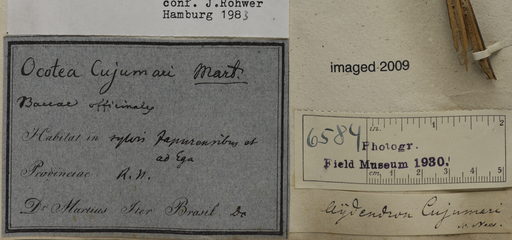 conf. J.Rohwer
Hamburg 1983
Ocotea Cujumari Mart.
Baccae officinales
Habitat in sylvis Japurensibus et
ad Ega
Provinciae R. N.
Dr Martius Iter Brasil De
imaged 2009
6584
in. 1 2
Photogr.
Field Museum 1930.
cm. 1 2 3 4 5
Aÿdendron Cujumari
N. Nees.